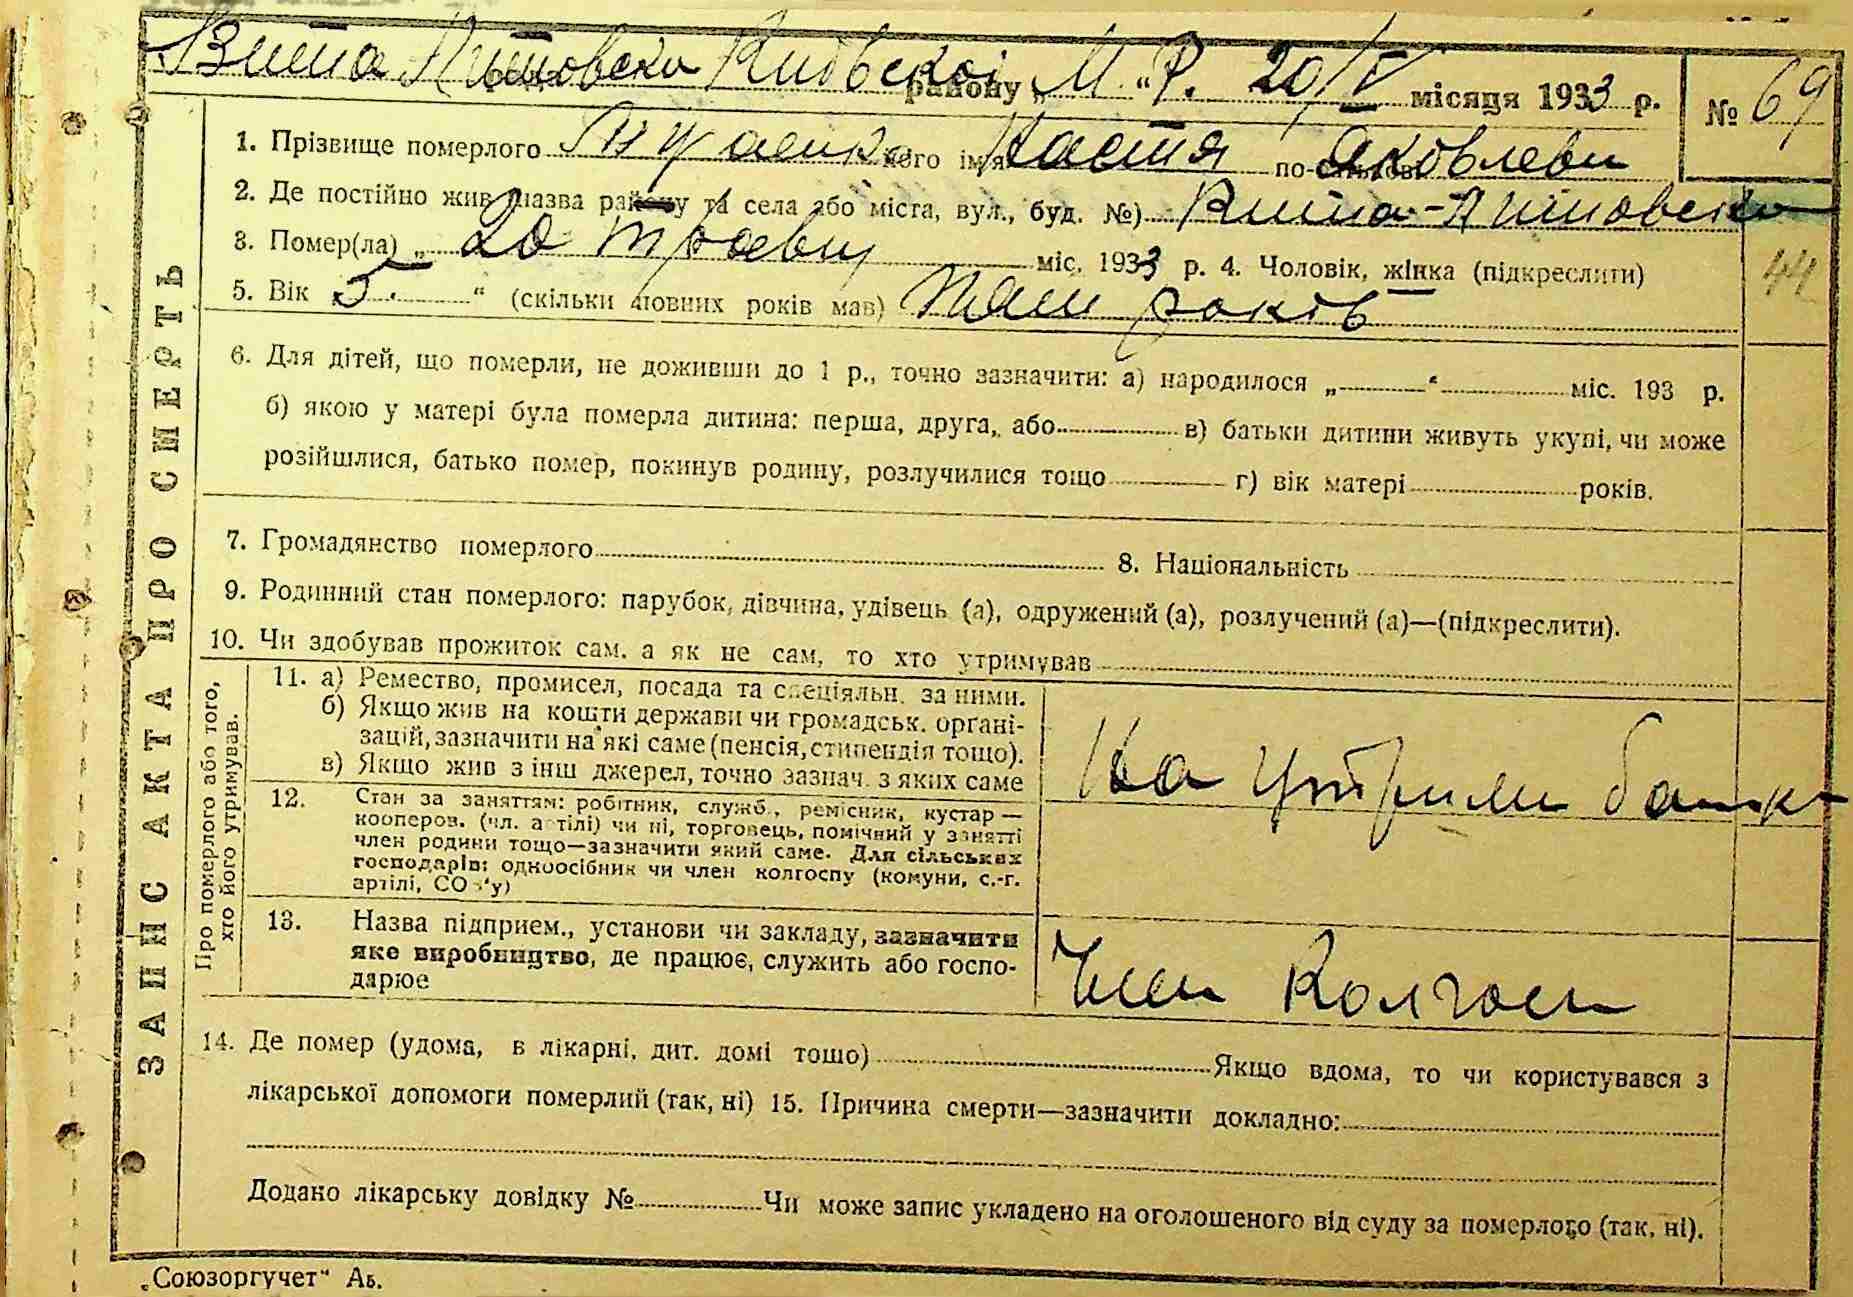 Вита Литовска Київскої району „ М. “ Р. 20/V місяця 1933 р. № 69
1. Прізвище померлого його ім'я Настя по-батькові Яковлевн
2. Де постійно жив (назва району та села або міста, вул., буд. №) Вита-Литовска
3. Помер(ла) „ 20 травня міс. 1933 р. 4. Чоловік, жінка (підкреслити)
44
5. Вік „ 5. “ (скільки повних років мав) пять років
6. Для дітей, що померли, не доживши до 1 р., точно зазначити: а) народилося „ “ міс. 193 р.
б) якою у матері була померла дитина: перша, друга, або в) батьки дитини живуть укупі, чи може
розійшлися, батько помер, покинув родину, розлучилися тощо г) вік матері років.
7. Громадянство померлого 8. Національність
9. Родинний стан померлого: парубок, дівчина, удівець (а), одружений (а), розлучений (а)—(підкреслити).
10. Чи здобував прожиток сам. а як не сам, то хто утримував
ЗАПИС АКТА ПРО СМЕРТЬ
Про померлого або того,
хто його утримував.
11. а) Ремество, промисел, посада та спеціяльн. за ними.
б) Якщо жив на кошти держави чи громадськ. органі-
зацій, зазначити на які саме (пенсія, стипендія тощо).
в) Якщо жив з інш джерел, точно зазнач. з яких саме
На утрим батьк
12. Стан за заняттям: робітник, служб., ремісник, кустар —
кооперов. (чл. артілі) чи ні, торговець, помічний у занятті
член родини тощо—зазначити який саме. Для сільських
господарів: одноосібник чи член колгоспу (комуни, с.-г.
артілі, СО у)
13. Назва підприєм., установи чи закладу, зазначити
яке виробництво, де працює, служить або госпо-
дарює
Член Колгосп
14. Де помер (удома, в лікарні, дит. домі тощо) Якщо вдома, то чи користувався з
лікарської допомоги померлий (так, ні) 15. Причина смерти—зазначити докладно:
Додано лікарську довідку № Чи може запис укладено на оголошеного від суду за померлого (так, ні).
„Союзоргучет“ Аь.